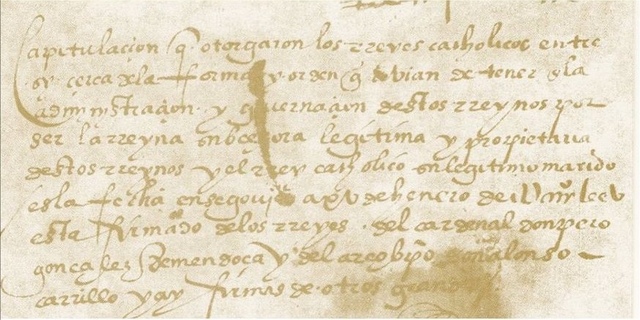 Capitulacion q. otorgaron los rreyes catholicos entre
sy cerca de la forma y orden q avian de tener en la
administraçion y governaçion destos rreynos por
ser la rreyna subcesora legitima y propietaria
destos rreynos y el rrey catholico su legitimo marido
es la fecha en segovia a xv de henero de
esta firmado de los rreyes . del cardenal don pero
gonçalez de mendoça y del arçobpo don alonso
carrillo y ay firmas de otros grandes